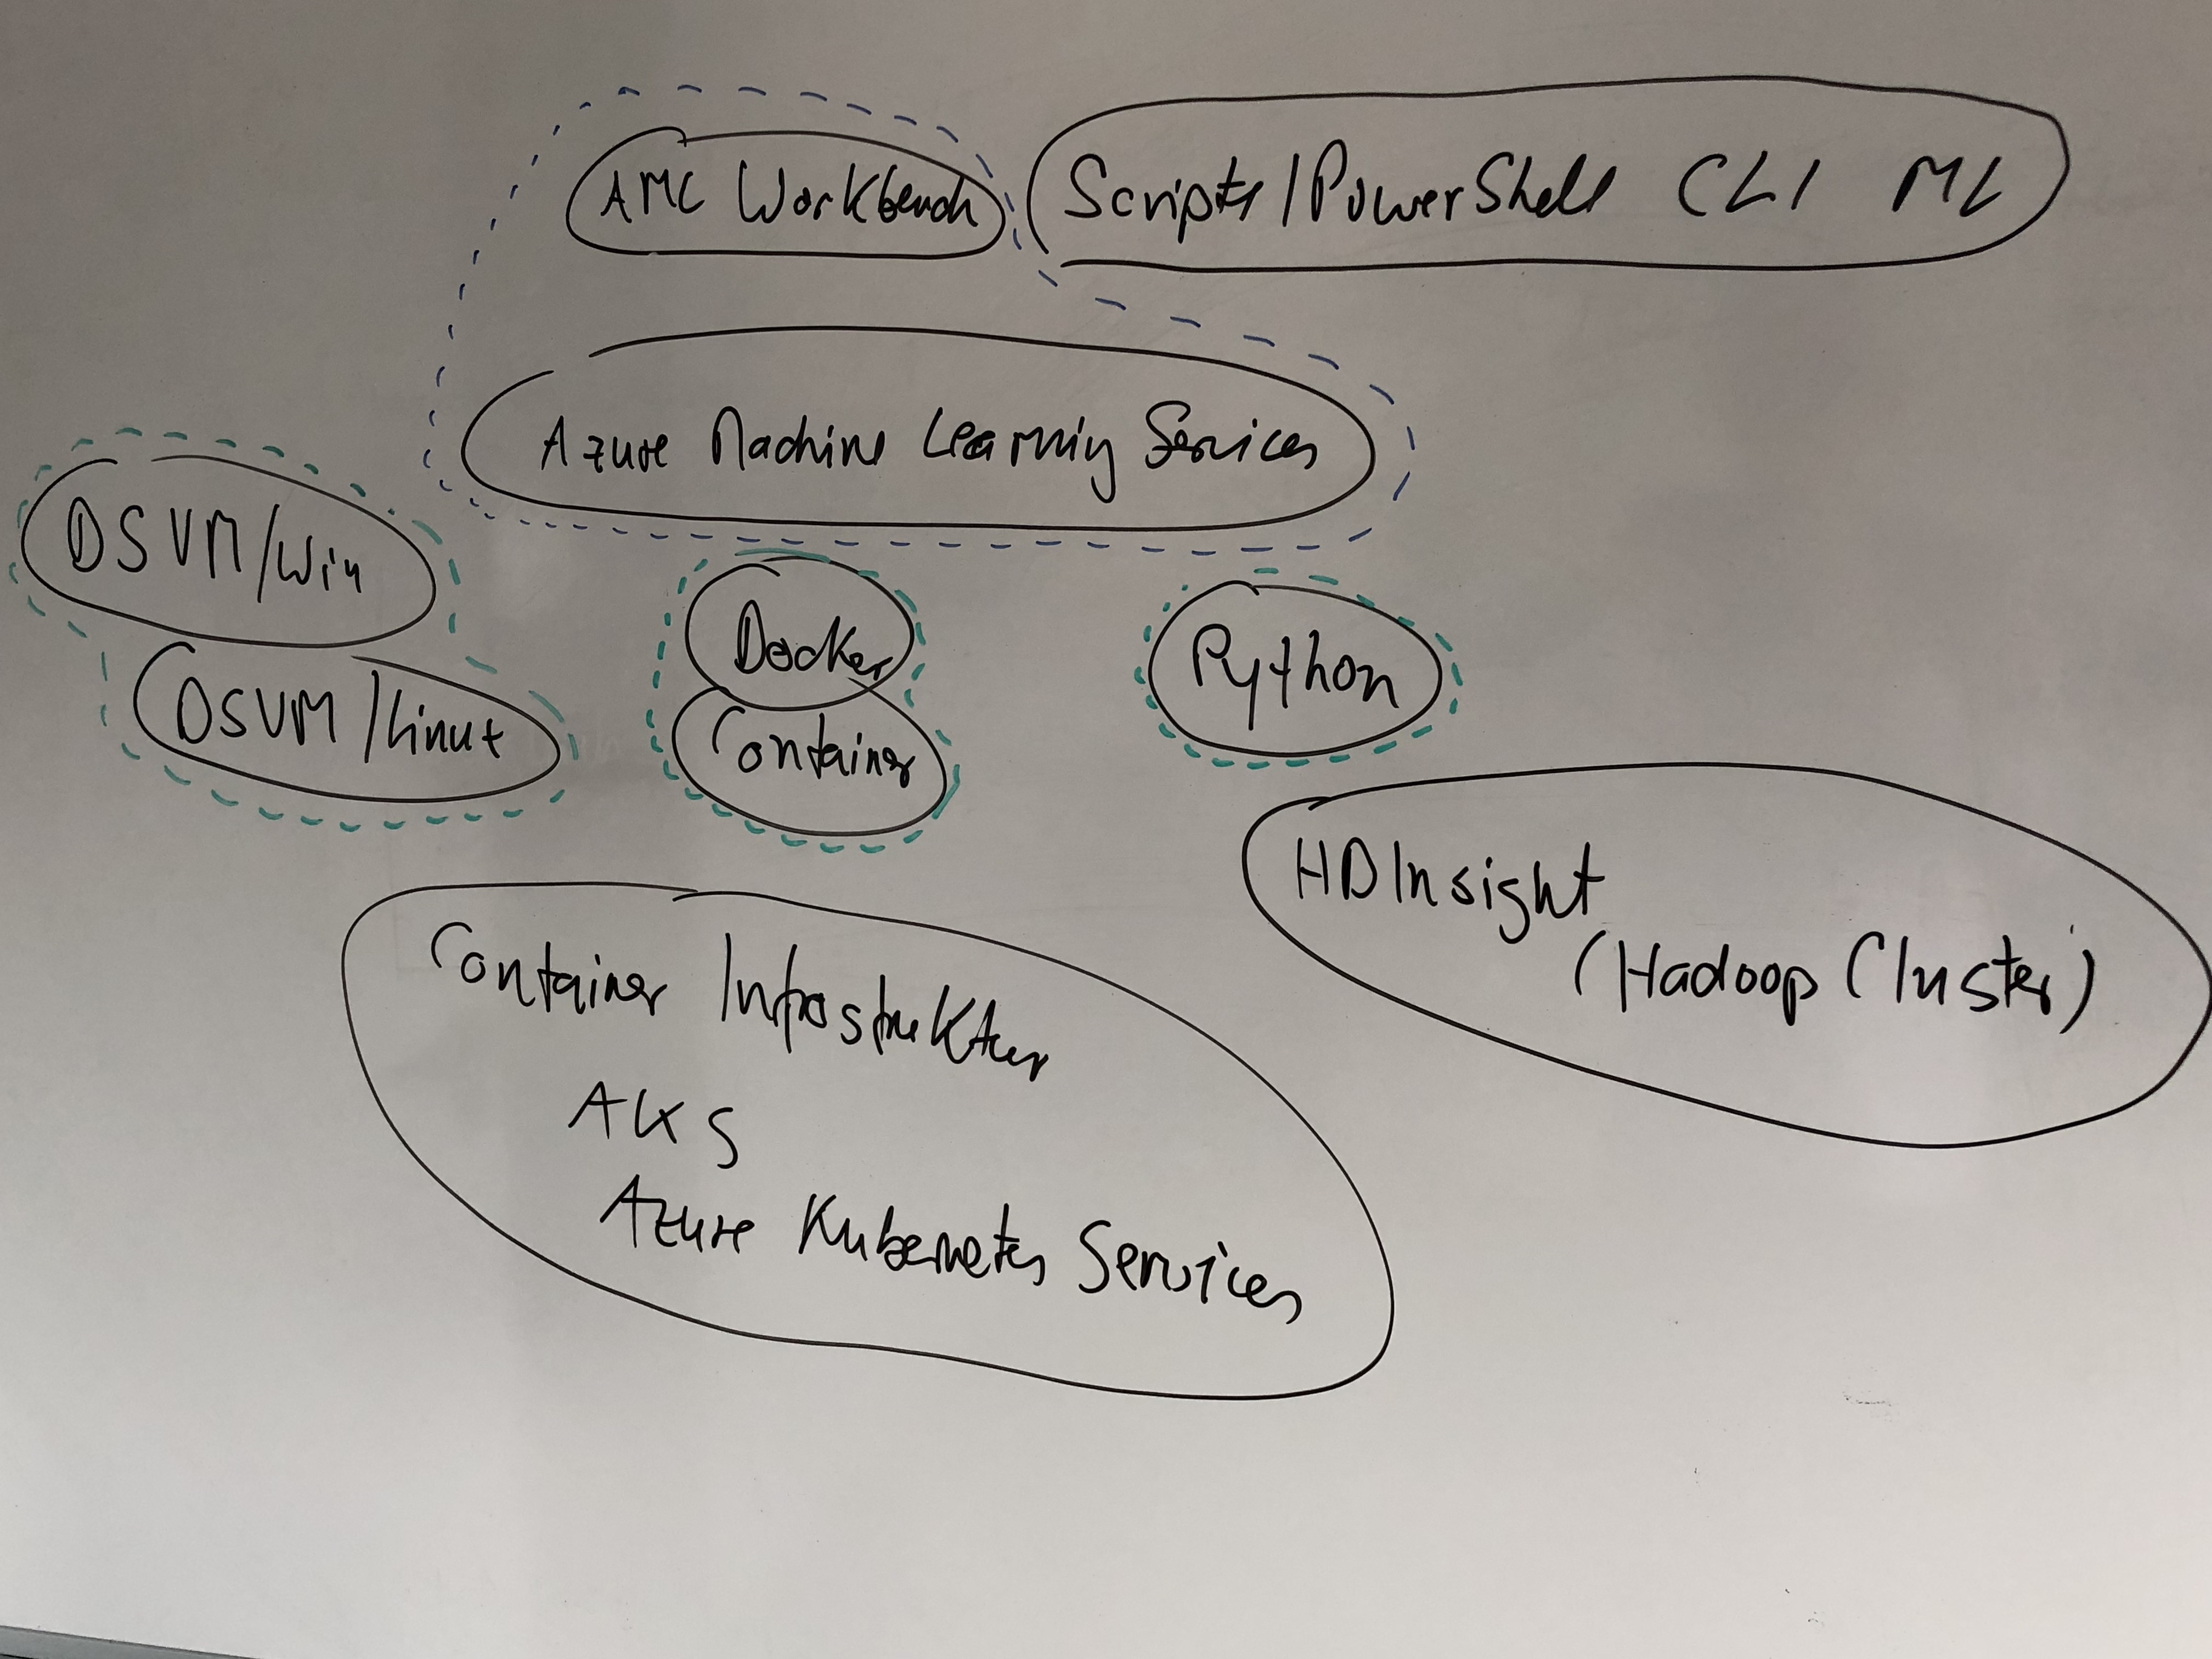 AML Workbench
Scripts/PowerShell CLI ML
Azure Machine Learning Services
DSVM/Win
DSVM/Linux
Docker
Container
Python
HDInsight
(Hadoop Cluster)
Container Infrastruktur
AKS
Azure Kubernetes Services